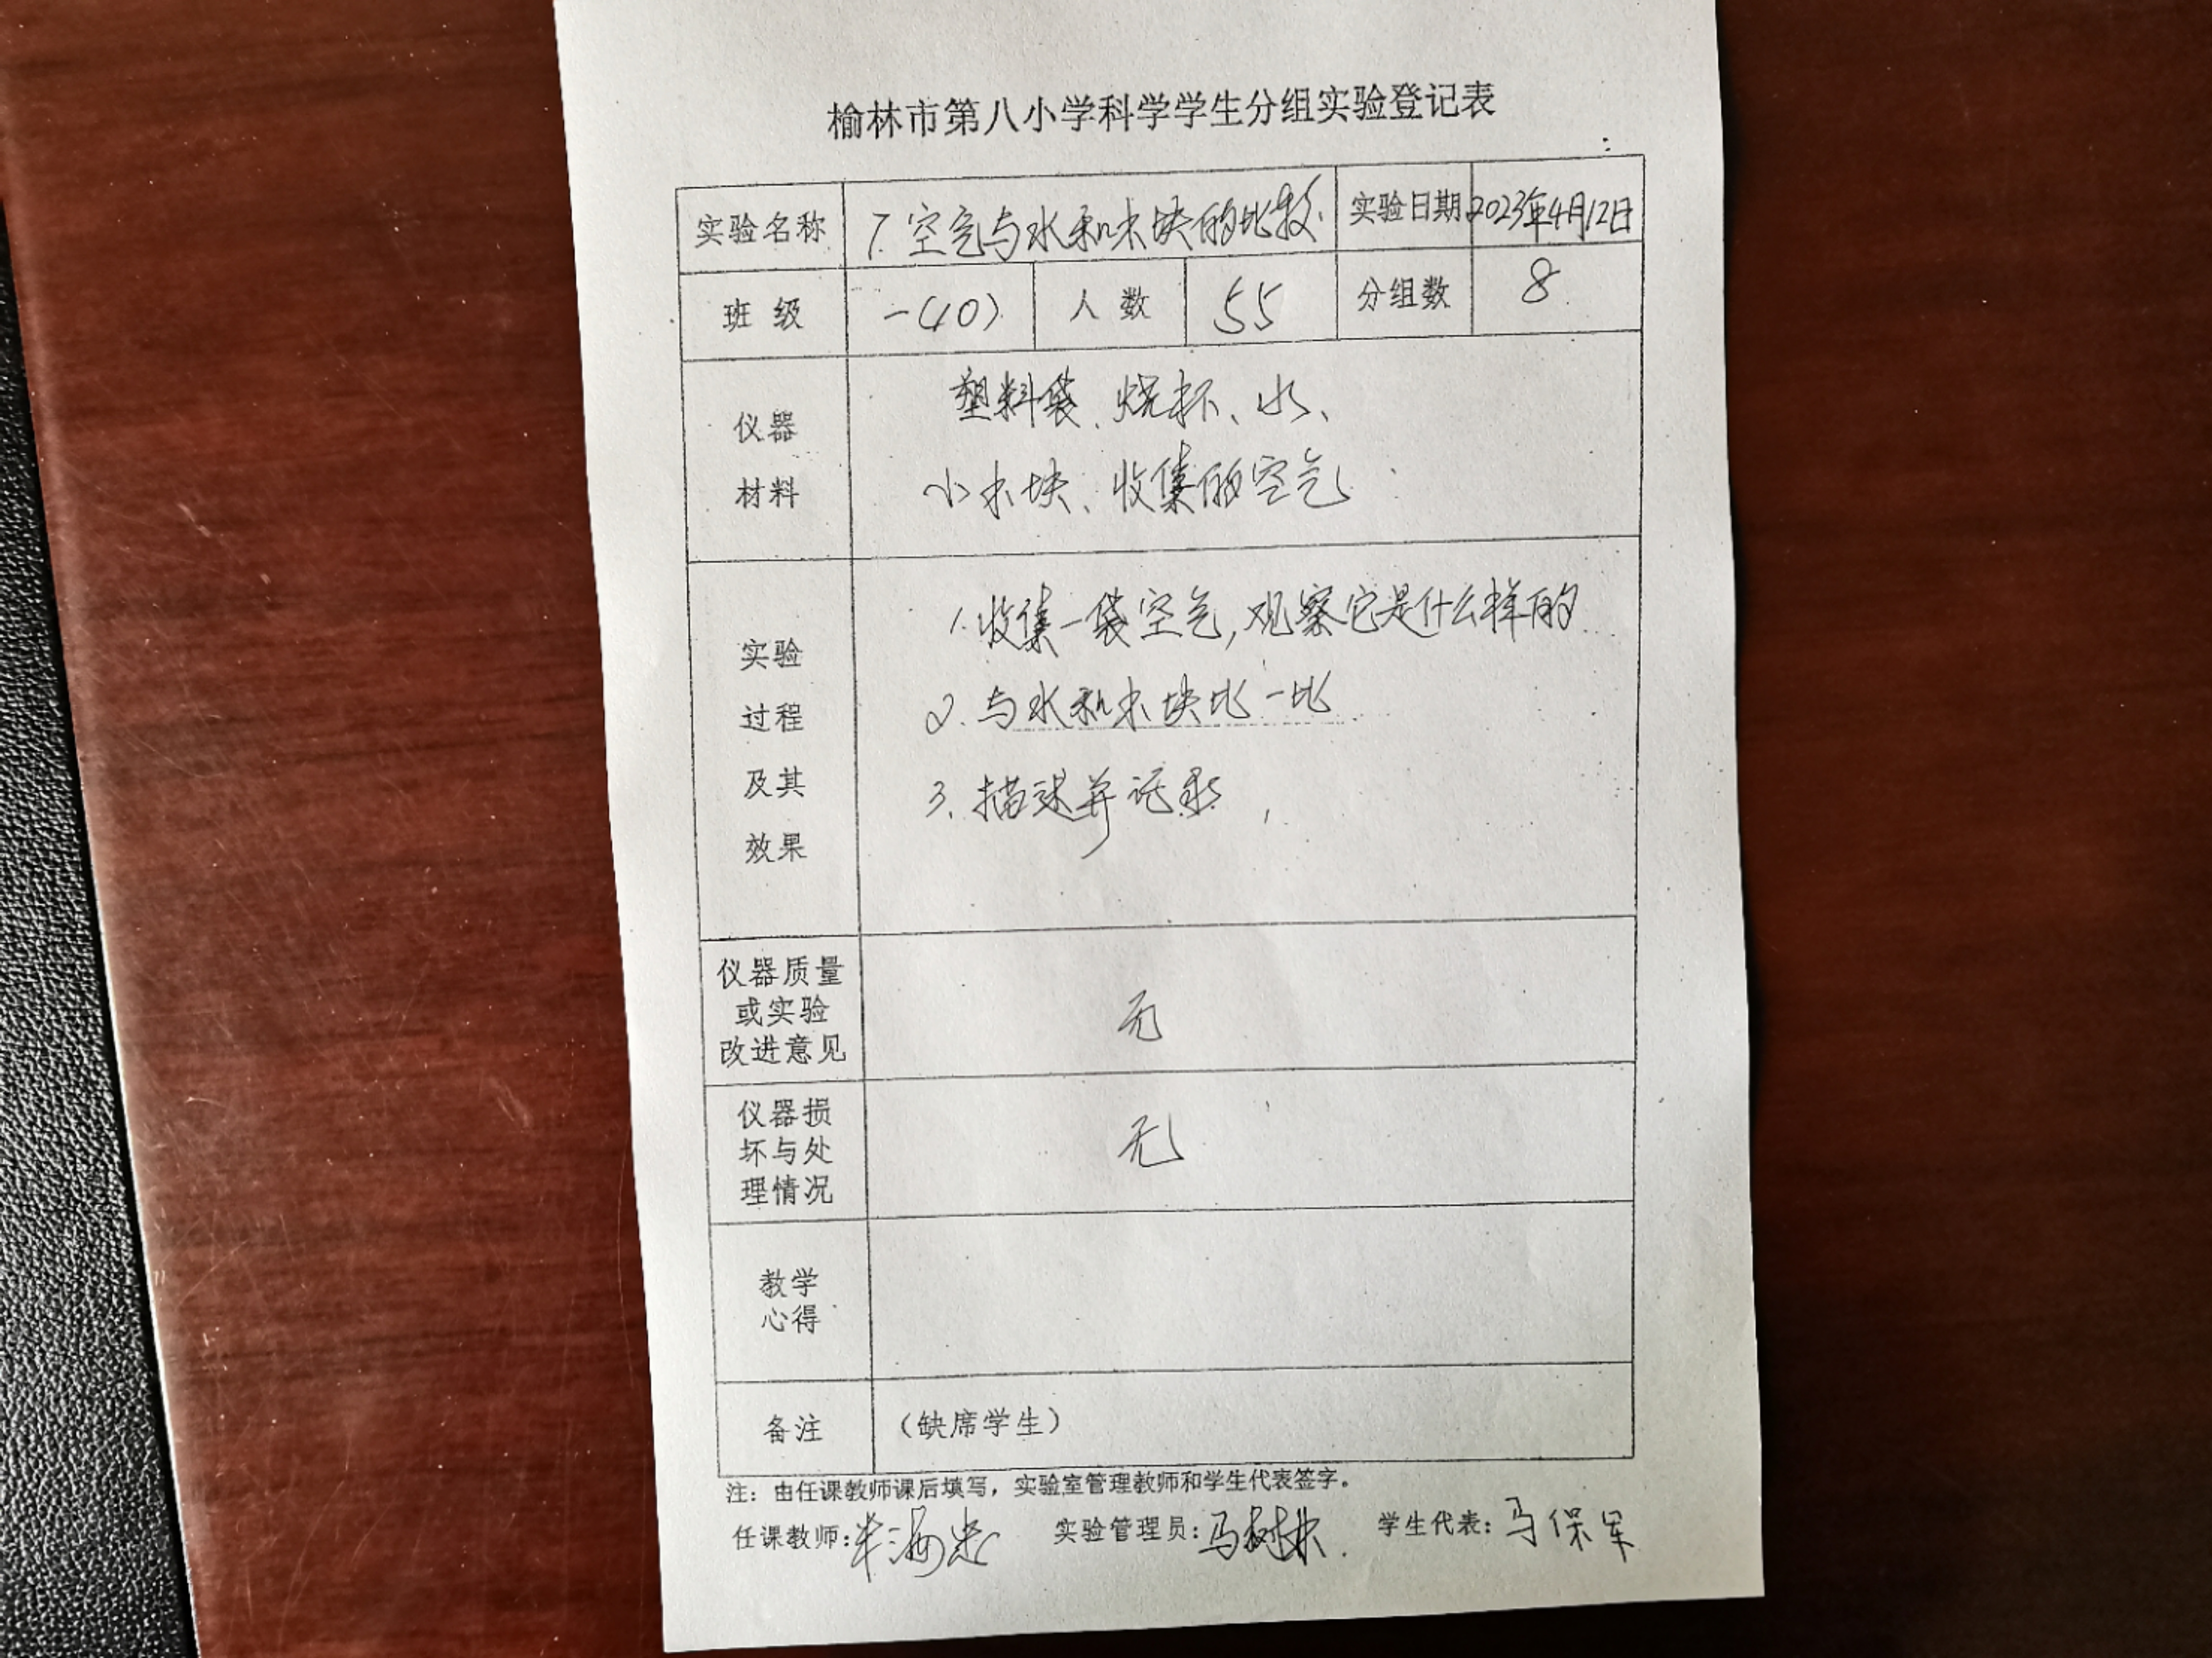 榆林市第八小学科学学生分组实验登记表
实验名称 7.空气与水和木块的比较. 实验日期 2023年4月12日
班 级 一(10) 人 数 55 分组数 8
仪器
材料
塑料袋、烧杯、水、
小木块、收集的空气
实验
过程
及其
效果
1.收集一袋空气,观察它是什么样的
2.与水和木块比一比
3.描述并记录
仪器质量
或实验
改进意见
无
仪器损
坏与处
理情况
无
教学
心得
备注 （缺席学生）
注：由任课教师课后填写，实验室管理教师和学生代表签字。
任课教师: 实验管理员:马树林. 学生代表:马保军